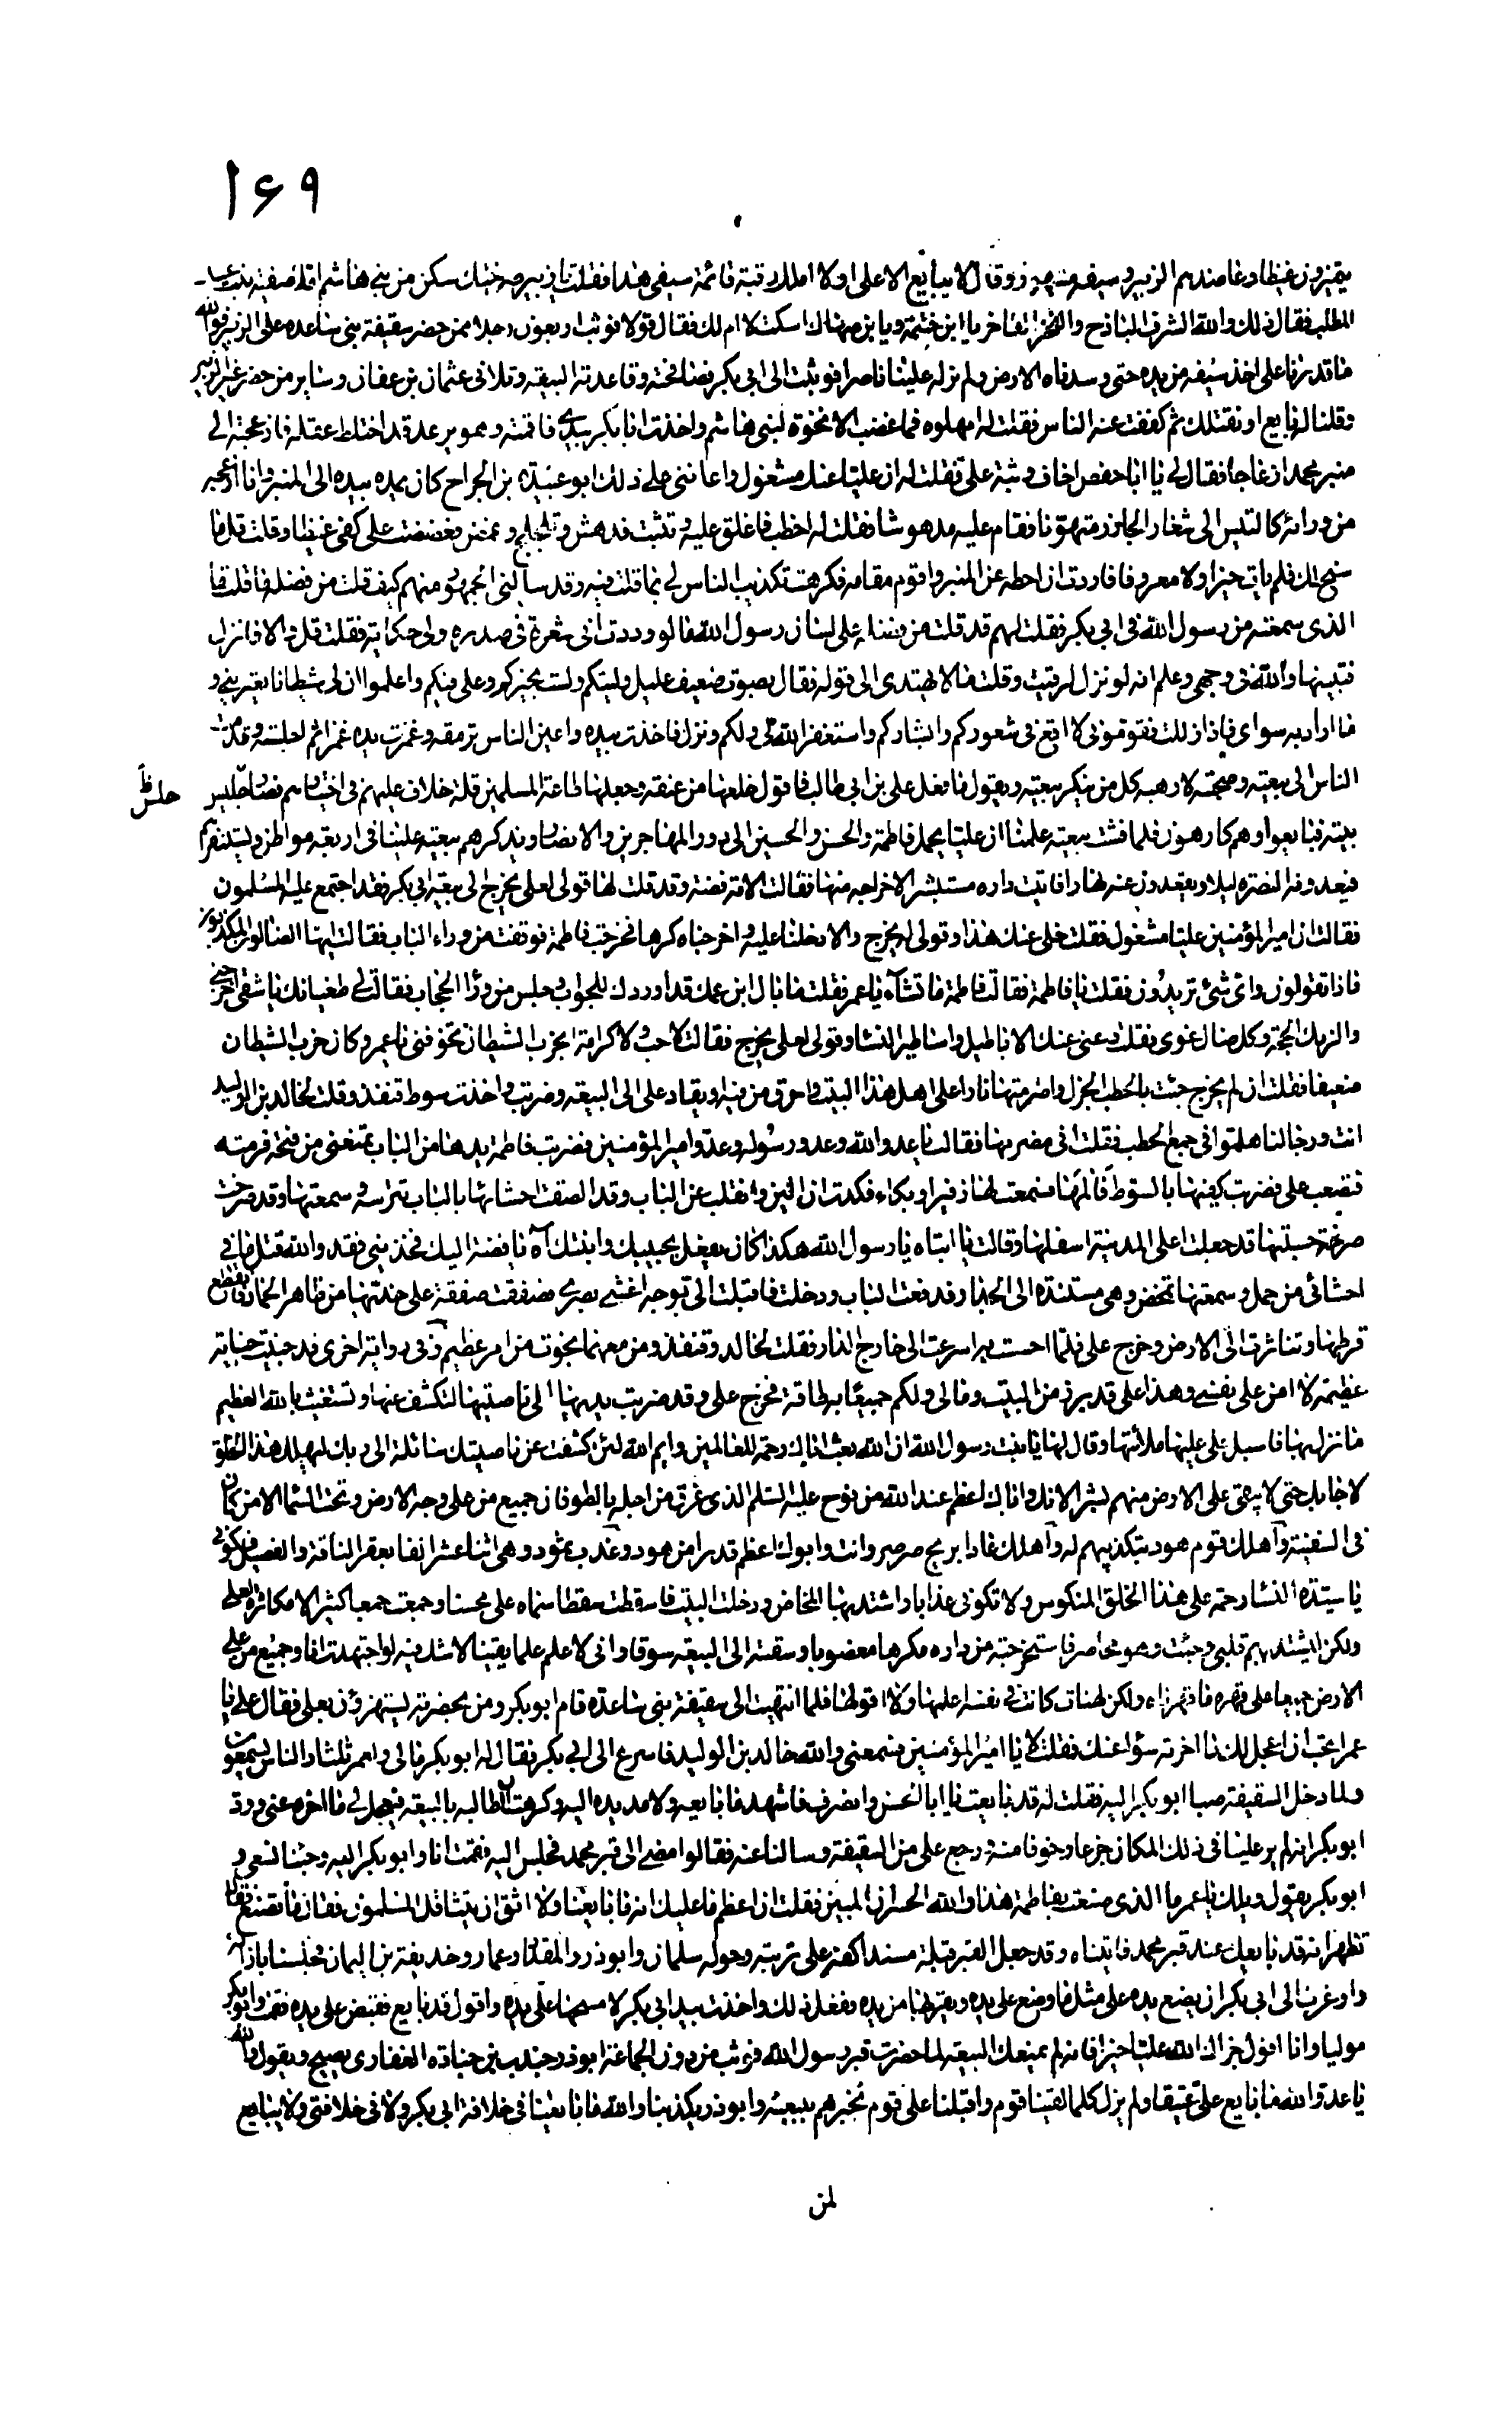 ١۶٩
يتميزون غيظا وعاضدهم الزبير وسيفه مشهور وقال لا يبايع الا علي اولا املك رقبة قائمة سيفي هذا فقلت يا زبير صرختك سكن من بني هاشم امك صفية بنت عبد
المطلب فقال ذلك والله الشرف الباذخ والفخر الفاخر يا ابن ختمة ويا بن صهاك اسكت لا ام لك فقال قولا فوثب اربعون رجلا ممن حضر سقيفة بني ساعدة على الزبير فوالله
ما قدرنا على اخذ سيفه من يده حتى وسدناه الارض ولم نر له علينا ناصرا فوثبت الى ابي بكر فصافحته وعاقدته البيعة وتلاني عثمان بن عفان وسائر من حضر غير الزبير
وقلنا له بايع او نقتلك ثم كففت عنه الناس فقلت له امهلوه فما غضب الا نخوة لبني هاشم واخذت ابا بكر بيدي فاقمته وهو يرعد قد اختلط عقله فازعجته الى
منبر محمد ازعاجا فقال لي يا ابا حفص اخاف وثبة علي فقلت له ان عليا عنك مشغول واعانني على ذلك ابو عبيدة بن الجراح كان يمده بيده الى المنبر وانا ازعجه
من ورائه كالتيس الى شغار الجازر متهونا فقام عليه مدهوشا فقلت له اخطب فاغلق عليه وتثبت فدهش وتلجلج وغمض فعضضت على كفي غيظا وقلت قل ما
سنح لك فلم يات خيرا ولا معروفا فاردت ان احطه عن المنبر واقوم مقامه فكرهت تكذيب الناس لي بما قلت فيه وقد سالني الجمهور منهم كيف قلت من فضله ما قلت ما
الذي سمعته من رسول الله في ابي بكر فقلت لهم قد قلت من فضله على لسان رسول الله ما لو وددت اني شعرة في صدره ولي حكاية فقلت قل والا فانزل
فتبينها والله في وجهي وعلم انه لو نزل لرقيت وقلت ما لا يهتدي الى قوله فقال بصوت ضعيف عليل وليتكم ولست بخيركم وعلي فيكم واعلموا ان لي شيطانا يعتريني و
ما اراد به سواي فاذا زللت فقوموني لا اقع في شعوركم وابشاركم واستغفر الله لي ولكم ونزل فاخذت بيده واعين الناس ترمقه وغمزت يده غمزا ثم اجلسته وقدمت
الناس الى بيعته وصحبته لارهبه كل من ينكر بيعته ويقول ما فعل علي بن ابي طالب فاقول خلعها من عنقه وجعلها طاعة المسلمين قلة خلاف عليهم في اختيارهم فصار جليس
بيته فبايعوا وهم كارهون فلما فشت بيعته علمنا ان عليا يحمل فاطمة والحسن والحسين الى دور المهاجرين والانصار ويذكرهم بيعته علينا في اربعة مواطن ويستنفرهم
فيعدونه النصرة ليلا ويقعدون عنه نهارا فاتيت داره مستيشرا لاخراجه منها فقالت الامة فضة وقد قلت لها قولي لعلي يخرج الى بيعة ابي بكر فقد اجتمع عليه المسلمون
فقالت ان امير المؤمنين عليا مشغول فقلت خلي عنك هذا وقولي له يخرج والا دخلنا عليه واخرجناه كرها فخرجت فاطمة فوقفت من وراء الباب فقالت ايها الضالون المكذبون
ماذا تقولون واي شئ تريدون فقلت يا فاطمة فقالت فاطمة ما تشاء يا عمر فقلت ما بال ابن عمك قد اوردك للجواب وجلس من وراء الحجاب فقالت لي طغيانك يا شقي اخرجني
والزمك الحجة وكل ضال غوي فقلت دعي عنك الاباطيل واساطير النساء وقولي لعلي يخرج فقالت لا حب ولا كرامة ابحزب الشيطان تخوفني يا عمر وكان حزب الشيطان
ضعيفا فقلت ان لم يخرج جئت بالحطب الجزل واضرمتها نارا على اهل هذا البيت واحرق من فيه او يقاد علي الى البيعة وضربت واخذت سوط قنفذ وقلت لخالد بن الوليد
انت ورجالنا هلموا في جمع الحطب فقلت اني مضرمها فقالت يا عدو الله وعدو رسوله وعدو امير المؤمنين فضربت فاطمة يديها من الباب تمنعني من فتحه فرمته
فتصعب علي فضربت كفيها بالسوط فالمها فسمعت لها زفيرا وبكاء فكدت ان الين وانقلب عن الباب وقد الصقت احشائها بالباب تترسه وسمعتها وقد صرخت
صرخة حسبتها قد جعلت اعلى المدينة اسفلها وقالت يا ابتاه يا رسول الله هكذا كان يفعل بحبيبتك وابنتك آه يا فضة اليك فخذيني فقد والله قتل ما في
احشائي من حمل وسمعتها تمخض وهي مستندة الى الجدار فدفعت الباب ودخلت فاقبلت الي بوجه اغشى بصري فصفقت صفقة على خديها من ظاهر الخمار فانقطع
قرطها وتناثرت الى الارض وخرج علي فلما احسست به اسرعت الى خارج الدار فقلت لخالد وقنفذ ومن معهما نجوت من امر عظيم وفي رواية اخرى قد جنيت جناية
عظيمة لا امن على نفسي وهذا علي قد برز من البيت ومالي ولكم جميعا به طاقة فخرج علي وقد ضربت يديها الى ناصيتها لتكشف عنها وتستغيث بالله العظيم
ما نزل بها فاسبل علي عليها ملائتها وقال لها يا بنت رسول الله ان الله بعث اباك رحمة للعالمين وايم الله لئن كشفت عن ناصيتك سائلة الى ربك ليهلك هذا الخلق
لاجابك حتى لا يبقى على الارض منهم بشر لانك واباك اعظم عند الله من نوح عليه السلم الذي غرق من اجله بالطوفان جميع من على وجه الارض وتحت السماء الا من كان
في السفينة واهلك قوم هود بتكذيبهم له واهلك عادا بريح صرصر وانت وابوك اعظم قدرا من هود وعذب ثمود وهي اثنا عشر الفا بعقر الناقة والفصيل فكوني
يا سيدة النساء رحمة على هذا الخلق المنكوس ولا تكوني عذابا واشتد بها المخاض ودخلت البيت فاسقطت سقطا سماه علي محسنا وجمعت جمعا كثيرا لا مكاثرة لعلي
ولكن ليشتد بهم قلبي وجئت وهو محاصر فاستخرجته من داره مكرها مغصوبا وسقته الى البيعة سوقا واني لاعلم علما يقينا لا شك فيه لو اجتهدت انا وجميع من على
الارض جميعا على قهره ما قهرناه ولكن لهنات كانت في نفسه اعلمها ولا اقولها فلما انتهيت الى سقيفة بني ساعدة قام ابو بكر ومن بحضرته يستهزؤن بعلي فقال علي يا
عمر اتحب ان اعجل لك ما اخرته سوا عنك فقلت لا يا امير المؤمنين فسمعني والله خالد بن الوليد فاسرع الى ابي بكر فقال له ابو بكر مالي ولعمر ثلثا والناس يسمعون
ولما دخل السقيفة صبا ابو بكر اليه فقلت له قد بايعت يا ابا الحسن وانصرف فاشهد ما بايعه ولا مد يده اليه وكرهت ان اطالبه بالبيعة فيعجل لي ما اخره عني وود
ابو بكر انه لم ير عليا في ذلك المكان جزعا وخوفا منه ورجع علي من السقيفة وسالنا عنه فقالوا مضى الى قبر محمد فجلس اليه فقمت انا وابو بكر اليه وجئنا نسعى و
ابو بكر يقول ويلك يا عمر ما الذي صنعت بفاطمة هذا والله الخسران المبين فقلت ان اعظم ما عليك انه ما بايعنا ولا اثق ان يتثاقل المسلمون فقال فما تصنع فقلت
تظهر انه قد بايعك عند قبر محمد فاتيناه وقد جعل القبر قبلة مسندا كفه على تربته وحوله سلمان وابو ذر والمقداد وعمار وحذيفة بن اليمان فجلسنا بازائه
واوعزت الى ابي بكر ان يضع يده على مثل ما وضع علي يده ويقربها من يده ففعل ذلك واخذت بيد ابي بكر لامسحها على يده واقول قد بايع فقبض علي يده فقمت وابو بكر
موليا وانا اقول جزاك الله عليا خيرا فانه لم يمنعك البيعة لما حضرت قبر رسول الله فوثب من دون الجماعة ابوذر جندب بن جنادة الغفاري يصيح ويقول والله
يا عدو الله ما بايع علي عتيقا ولم يزل كلما لقينا قوم واقبلنا على قوم نخبرهم ببيعته وابو ذر يكذبنا والله ما بايعنا في خلافة ابي بكر ولا في خلافتي ولا يبايع
لمن